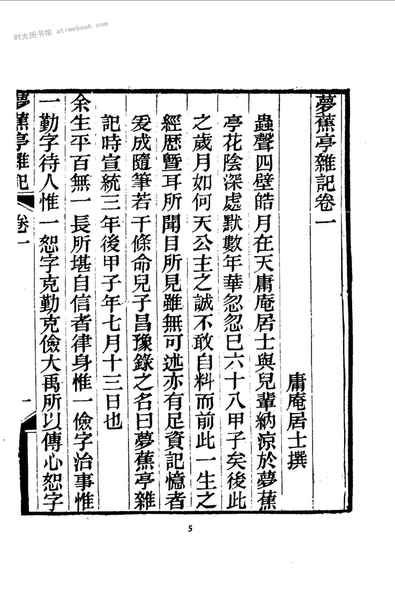 时光图书馆 alimebook.com
夢蕉亭雜記卷一
庸庵居士撰
蟲聲四壁皓月在天庸庵居士與兒輩納涼於夢蕉
亭花陰深處默數年華忽忽已六十八甲子矣後此
之歲月如何天公主之誠不敢自料而前此一生之
經歷暨耳所聞目所見雖無可述亦有足資記憶者
爰成隨筆若干條命兒子昌豫錄之名曰夢蕉亭雜
記時宣統三年後甲子年七月十三日也
余生平百無一長所堪自信者律身惟一儉字治事惟
一勤字待人惟一恕字克勤克儉大禹所以傳心恕字
夢蕉亭雜記 卷一 一
5